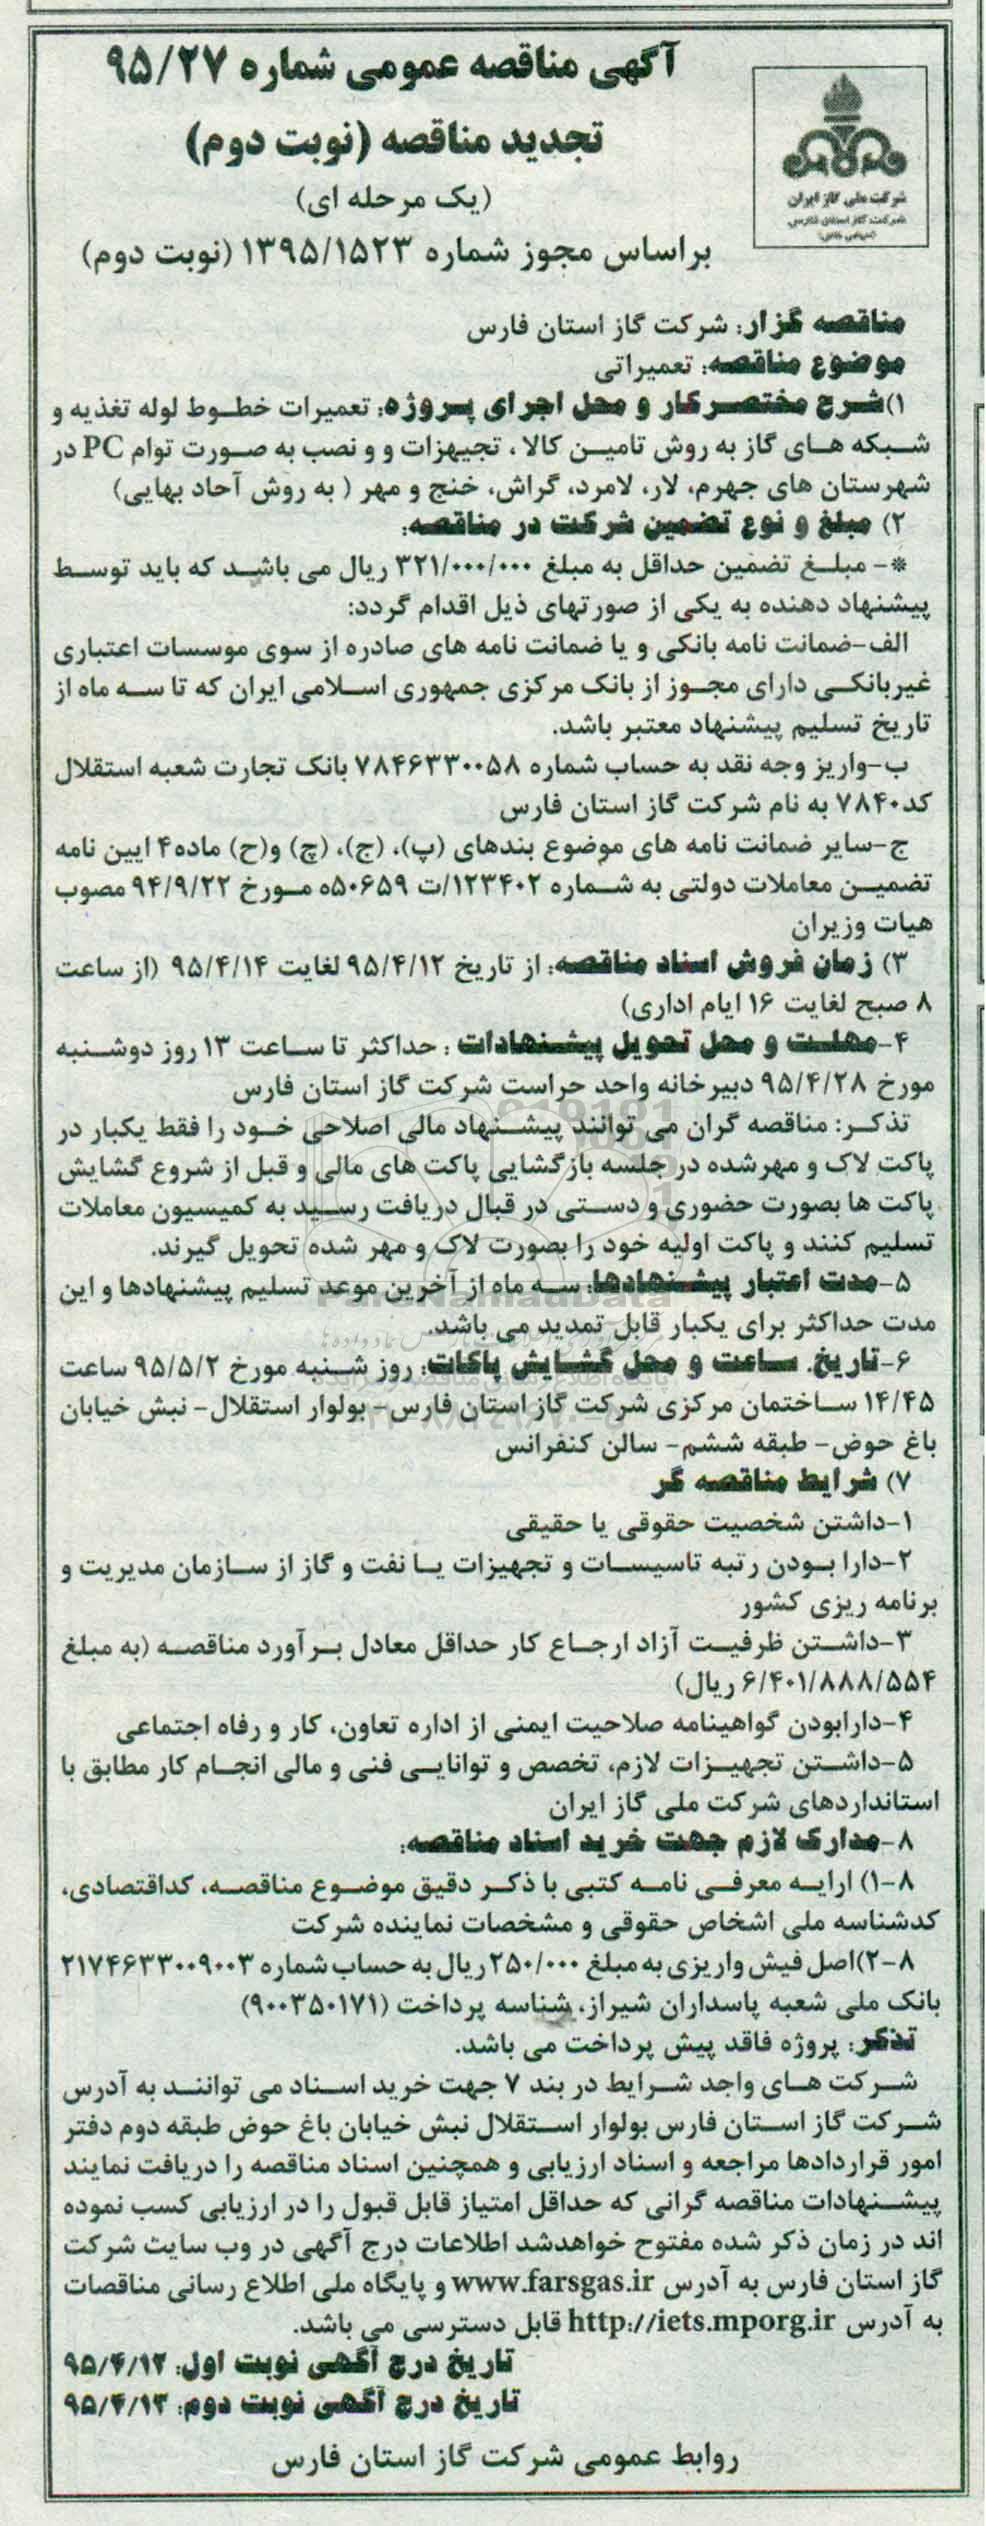 آگهی مناقصه عمومی شماره ۹۵/۲۷
تجدید مناقصه (نوبت دوم)
(یک مرحله ای)
براساس مجوز شماره ۱۳۹۵/۱۵۲۳ (نوبت دوم)
شرکت ملی گاز ایران
شرکت گاز استان فارس
(سهامی خاص)
مناقصه گزار: شرکت گاز استان فارس
موضوع مناقصه: تعمیراتی
۱)شرح مختصرکار و محل اجرای پروژه: تعمیرات خطوط لوله تغذیه و
شبکه های گاز به روش تامین کالا ، تجیهزات و و نصب به صورت توام PC در
شهرستان های جهرم، لار، لامرد، گراش، خنج و مهر ( به روش آحاد بهایی)
۲) مبلغ و نوع تضمین شرکت در مناقصه:
*- مبلغ تضمین حداقل به مبلغ ۳۲۱/۰۰۰/۰۰۰ ریال می باشد که باید توسط
پیشنهاد دهنده به یکی از صورتهای ذیل اقدام گردد:
الف-ضمانت نامه بانکی و یا ضمانت نامه های صادره از سوی موسسات اعتباری
غیربانکی دارای مجوز از بانک مرکزی جمهوری اسلامی ایران که تا سه ماه از
تاریخ تسلیم پیشنهاد معتبر باشد.
ب-واریز وجه نقد به حساب شماره ۷۸۴۶۳۳۰۰۵۸ بانک تجارت شعبه استقلال
کد۷۸۴۰ به نام شرکت گاز استان فارس
ج-سایر ضمانت نامه های موضوع بندهای (پ)، (ج)، (چ) و(ح) ماده۴ ایین نامه
تضمین معاملات دولتی به شماره ۱۲۳۴۰۲/ت ۵۰۶۵۹ه مورخ ۹۴/۹/۲۲ مصوب
هیات وزیران
۳) زمان فروش اسناد مناقصه: از تاریخ ۹۵/۴/۱۲ لغایت ۹۵/۴/۱۴ (از ساعت
۸ صبح لغایت ۱۶ ایام اداری)
۴-مهلت و محل تحویل پیشنهادات : حداکثر تا ساعت ۱۳ روز دوشنبه
مورخ ۹۵/۴/۲۸ دبیرخانه واحد حراست شرکت گاز استان فارس
تذکر: مناقصه گران می توانند پیشنهاد مالی اصلاحی خود را فقط یکبار در
پاکت لاک و مهرشده در جلسه بازگشایی پاکت های مالی و قبل از شروع گشایش
پاکت ها بصورت حضوری و دستی در قبال دریافت رسید به کمیسیون معاملات
تسلیم کنند و پاکت اولیه خود را بصورت لاک و مهر شده تحویل گیرند.
۵-مدت اعتبار پیشنهادها: سه ماه از آخرین موعد تسلیم پیشنهادها و این
مدت حداکثر برای یکبار قابل تمدید می باشد.
۶-تاریخ، ساعت و محل گشایش پاکات: روز شنبه مورخ ۹۵/۵/۲ ساعت
۱۴/۴۵ ساختمان مرکزی شرکت گاز استان فارس- بولوار استقلال- نبش خیابان
باغ حوض- طبقه ششم- سالن کنفرانس
۷) شرایط مناقصه گر
۱-داشتن شخصیت حقوقی یا حقیقی
۲-دارا بودن رتبه تاسیسات و تجهیزات یا نفت و گاز از سازمان مدیریت و
برنامه ریزی کشور
۳-داشتن ظرفیت آزاد ارجاع کار حداقل معادل برآورد مناقصه (به مبلغ
۶/۴۰۱/۸۸۸/۵۵۴ ریال)
۴-دارابودن گواهینامه صلاحیت ایمنی از اداره تعاون، کار و رفاه اجتماعی
۵-داشتن تجهیزات لازم، تخصص و توانایی فنی و مالی انجام کار مطابق با
استانداردهای شرکت ملی گاز ایران
۸-مدارک لازم جهت خرید اسناد مناقصه:
۸-۱) ارایه معرفی نامه کتبی با ذکر دقیق موضوع مناقصه، کداقتصادی،
کدشناسه ملی اشخاص حقوقی و مشخصات نماینده شرکت
۸-۲)اصل فیش واریزی به مبلغ ۲۵۰/۰۰۰ ریال به حساب شماره ۲۱۷۴۶۳۳۰۰۹۰۰۳
بانک ملی شعبه پاسداران شیراز، شناسه پرداخت (۹۰۰۳۵۰۱۷۱)
تذکر: پروژه فاقد پیش پرداخت می باشد.
شرکت های واجد شرایط در بند ۷ جهت خرید اسناد می توانند به آدرس
شرکت گاز استان فارس بولوار استقلال نبش خیابان باغ حوض طبقه دوم دفتر
امور قراردادها مراجعه و اسناد ارزیابی و همچنین اسناد مناقصه را دریافت نمایند
پیشنهادات مناقصه گرانی که حداقل امتیاز قابل قبول را در ارزیابی کسب نموده
اند در زمان ذکر شده مفتوح خواهدشد اطلاعات درج آگهی در وب سایت شرکت
گاز استان فارس به آدرس www.farsgas.ir و پایگاه ملی اطلاع رسانی مناقصات
به آدرس http://iets.mporg.ir قابل دسترسی می باشد.
تاریخ درج آگهی نوبت اول: ۹۵/۴/۱۲
تاریخ درج آگهی نوبت دوم: ۹۵/۴/۱۳
روابط عمومی شرکت گاز استان فارس